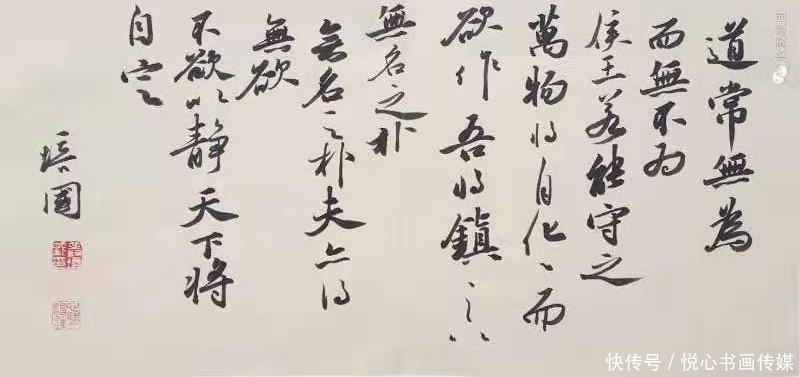 道常無為
而無不为
侯王若能守之
萬物将自化〻而
欲作吾将鎮之以
無名之朴
無名之朴夫亦将
無欲
不欲以静天下将
自定
培國
快传号 / 悦心书画传媒